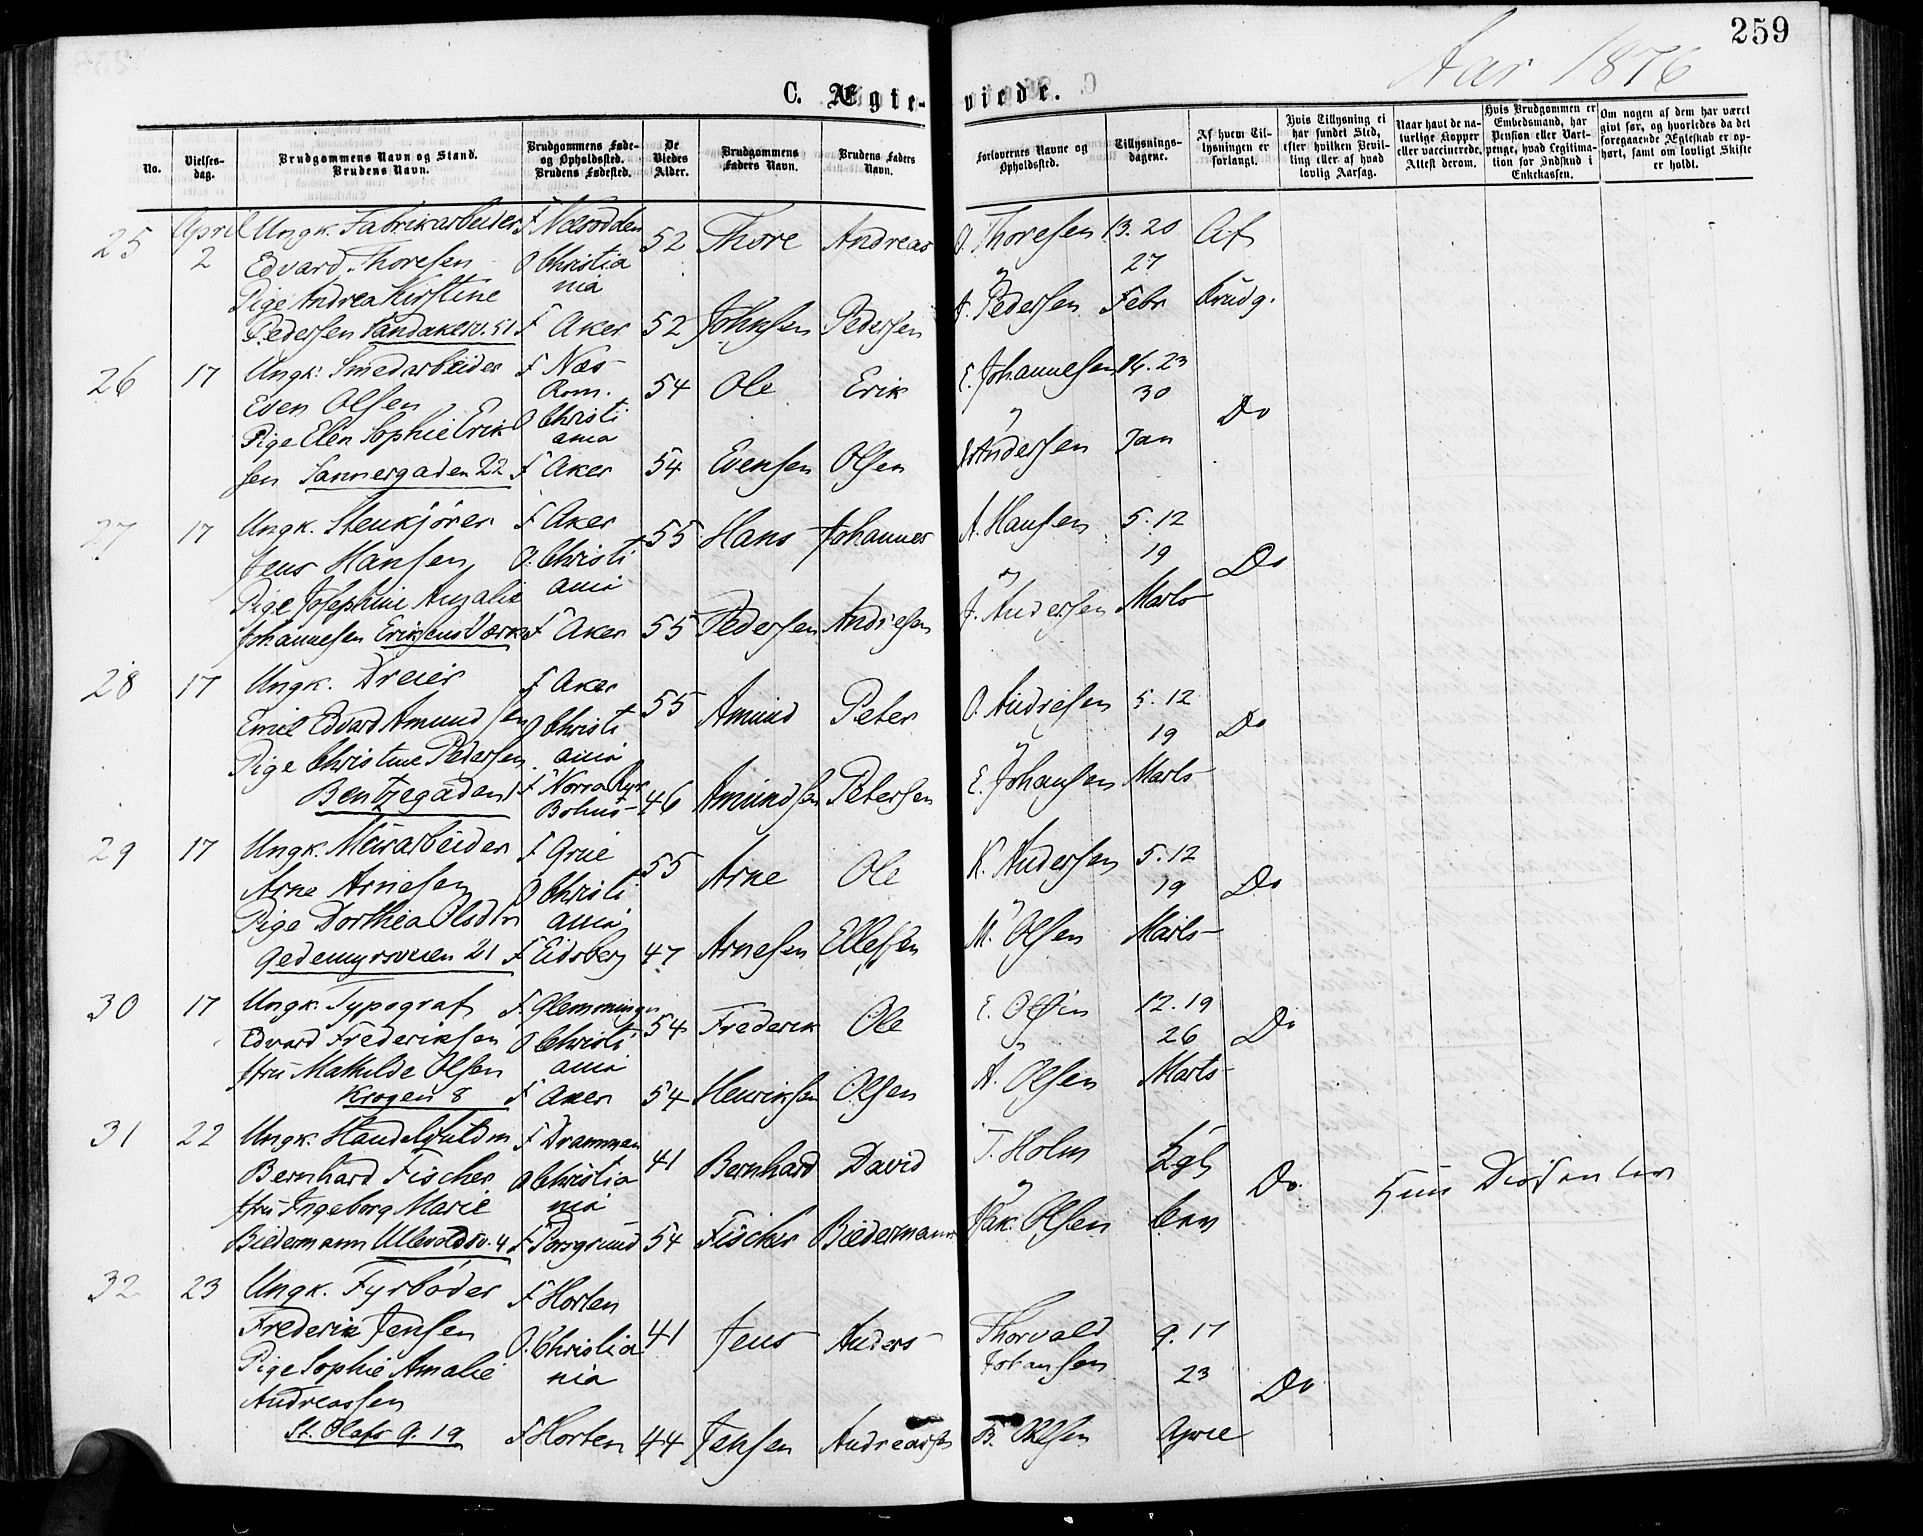 259
Aar 1876
C. Ægte-viede.
No.
Vielses-dag.
Brudgommens Navn og Stand.
Brudens Navn.
Brudgommens Føde-
og Opholdssted.
Brudens Fødested.
De
Viedes
Alder.
Brudgommens
Faders Navn.
Brudens Faders
Navn.
Forlovernes Navne og
Opholdssted.
Tillysnings-
dagene.
Af hvem Til-
lysningen er
forlangt.
Hvis Tillysning ei
har fundet Sted,
efter hvilken Bevil-
ling eller af hvad
lovlig Aarsag.
Naar havt de na-
turlige Kopper
eller vaccinerede.
Attest derom.
Hvis Brudgommen er
Embedsmand, har
Pension eller Vart-
penge, hvad Legitima-
tion for Indskud i
Enkekassen.
Om nogen af dem har været
gift før, og hvorledes da det
foregaaende Ægteskab er op-
hørt, samt om lovligt Skifte
er holdt.
25 April Ungk. Fabrikarbeider F Næsodden 52 Thore Andreas O. Thoresen 13. 20 Af
2 Edvard Thoresen O Christia 27
Pige Andrea Kirstine nia og
Pedersen Sandakerv. 51 F Aker 52 Johnsen Pedersen A. Pedersen Febr Brudg.
26 17 Ungk. Smedarbeider F Næs 54 Ole Erik E. Johannesen 16. 23
Even Olsen Rom. 30
Pige Elen Sophie Erik O Christi og Do
ania
sen Sannergaden 22 F Aker 54 Evensen Olsen Andersen Jan
27 17 Ungk. Stenkjører F Aker 55 Hans Johannes A. Hansen 5. 12
Jens Hansen O. Christi 19
Pige Josephine Amalie ania og Do
Johannesen Eriksens Værk F Aker 55 Pedersen Andresen J. Andersen Marts
28 17 Ungk. Dreier F Aker 55 Amund Peter O. Andresen 5. 12
Emil Edvard Amundsen O Christi 19 Do
Pige Christine Pedersen ania og
Bentzegaden F Norra Ryr 46 Amundsen Petersen E. Johansen Marts
Bohus
29 17 Ungk. Murarbeider F Grue 55 Arne Ole K. Andersen 5. 12
Arne Arnesen O Christi 19 Do
Pige Dorthea Olsdtr ania og
Gedemyrsveien 21 F Eidsberg 47 Arnesen Ellefsen M. Olsen Marts
30 17 Ungk. Typograf F. Glemminge 54 Frederik Ole E. Olsen 12. 19
Edvard Frederiksen O Christi og 26 Do
Fru Mathilde Olsen ania
Krogen 8 F Aker 54 Henriksen Olsen A. Olsen Marts
31 22 Ungk. Handelsfuldm F Drammen 41 Bernhard David T. Holm Kgl
Bernhard Fischer O Christia Do Hun Dissenter
Fru Ingeborg Marie nia og
Biedermann Ullevoldsv. 4 F Porsgrund 54 Fischer Biedermann Jak. Olsen
32 23 Ungk. Fyrbøder F Horten
Frederik Jensen O. Christia 41 Jens Anders Thorvald 9. 17
Pige Sophie Amalie nia Johansen 23
Andreassen Do
St. Olafs G. 19 F Horten 44 Jensen Andreassen B. Olsen April